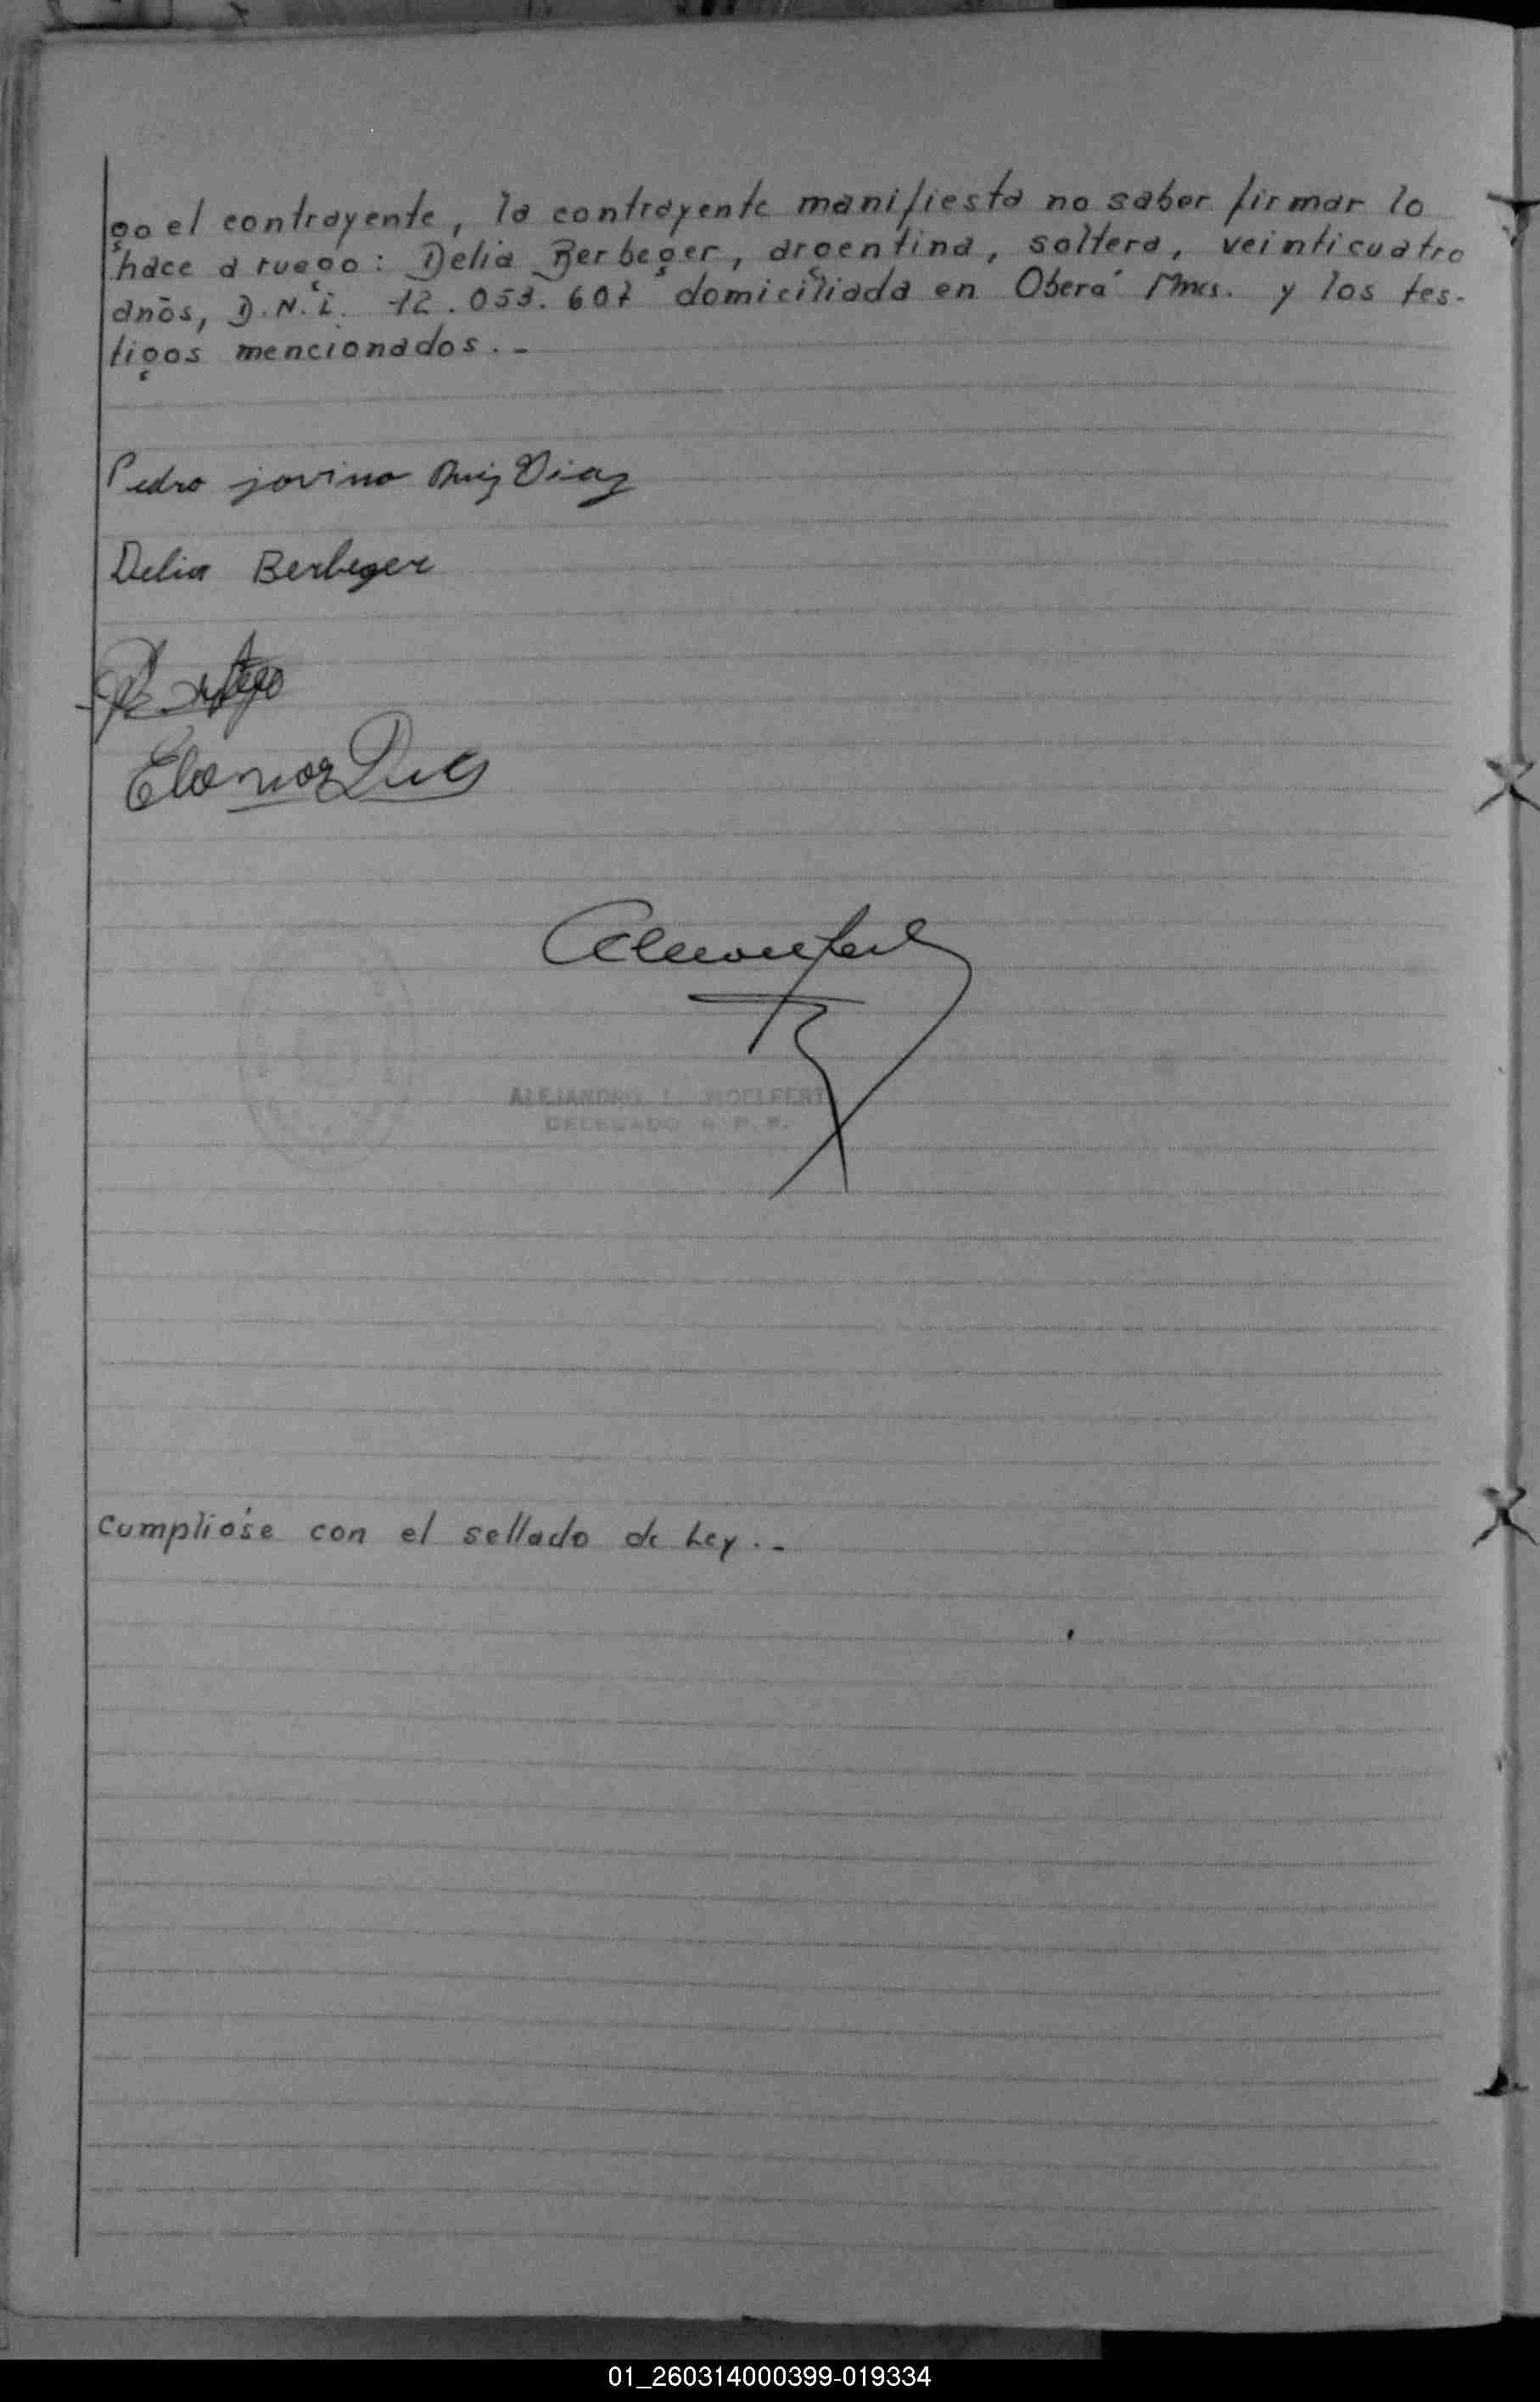 go el contrayente, la contrayente manifiesta no saber firmar lo
hace a ruego: Delia Berbeger, argentina, soltera, veinticuatro
años, D.N.I. 12.053.607 domiciliada en Oberá Mnes. y los tes-
tigos mencionados.-
Pedro jovino Ruiz Diaz
Delia Berbeger
ALEJANDRO L. WOELFERT
DELEGADO R. P. P.
Cumplióse con el sellado de Ley.-
01_260314000399-019334